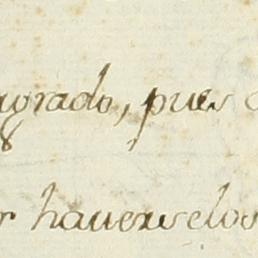 agrado, pues
r hauerselos